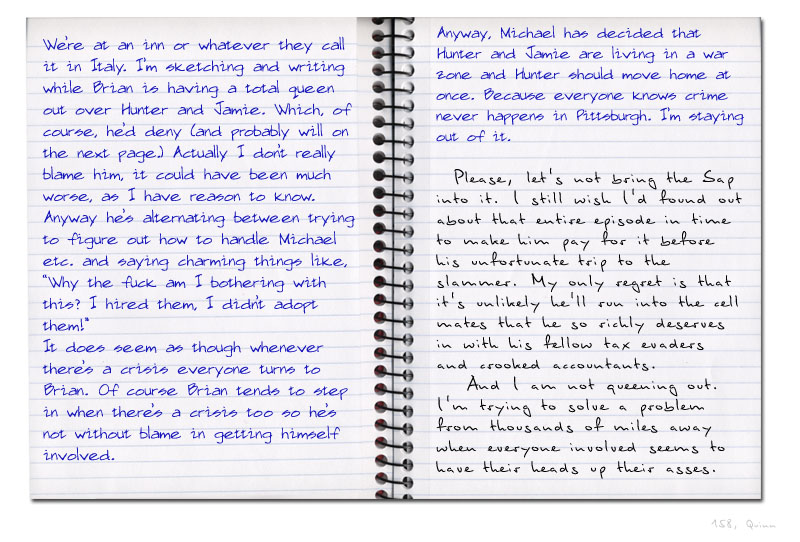 We're at an inn or whatever they call
it in Italy. I'm sketching and writing
while Brian is having a total queen
out over Hunter and Jamie. Which, of
course, he'd deny (and probably will on
the next page.) Actually I don't really
blame him, it could have been much
worse, as I have reason to know.
Anyway he's alternating between trying
to figure out how to handle Michael
etc. and saying charming things like,
"Why the fuck am I bothering with
this? I hired them, I didn't adopt
them!"
It does seem as though whenever
there's a crisis everyone turns to
Brian. Of course Brian tends to step
in when there's a crisis too so he's
not without blame in getting himself
involved.
Anyway, Michael has decided that
Hunter and Jamie are living in a war
zone and Hunter should move home at
once. Because everyone knows crime
never happens in Pittsburgh. I'm staying
out of it.
Please, let's not bring the Sap
into it. I still wish I'd found out
about that entire episode in time
to make him pay for it before
his unfortunate trip to the
slammer. My only regret is that
it's unlikely he'll run into the cell
mates that he so richly deserves
in with his fellow tax evaders
and crooked accountants.
And I am not queening out.
I'm trying to solve a problem
from thousands of miles away
when everyone involved seems to
have their heads up their asses.
158, Quinn